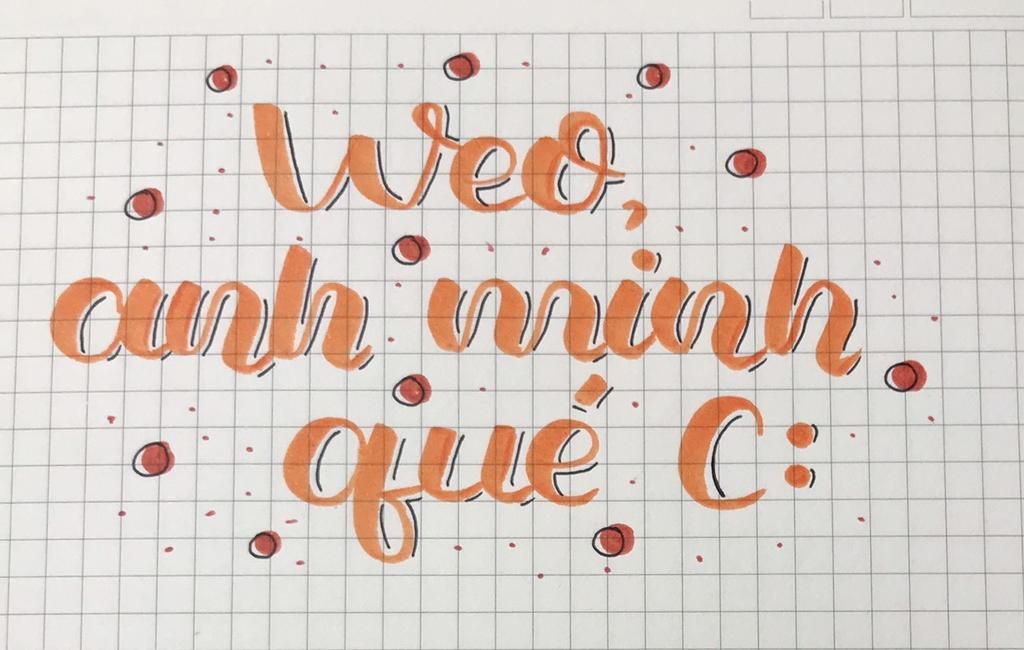 Weo,
anh minh
qué C: